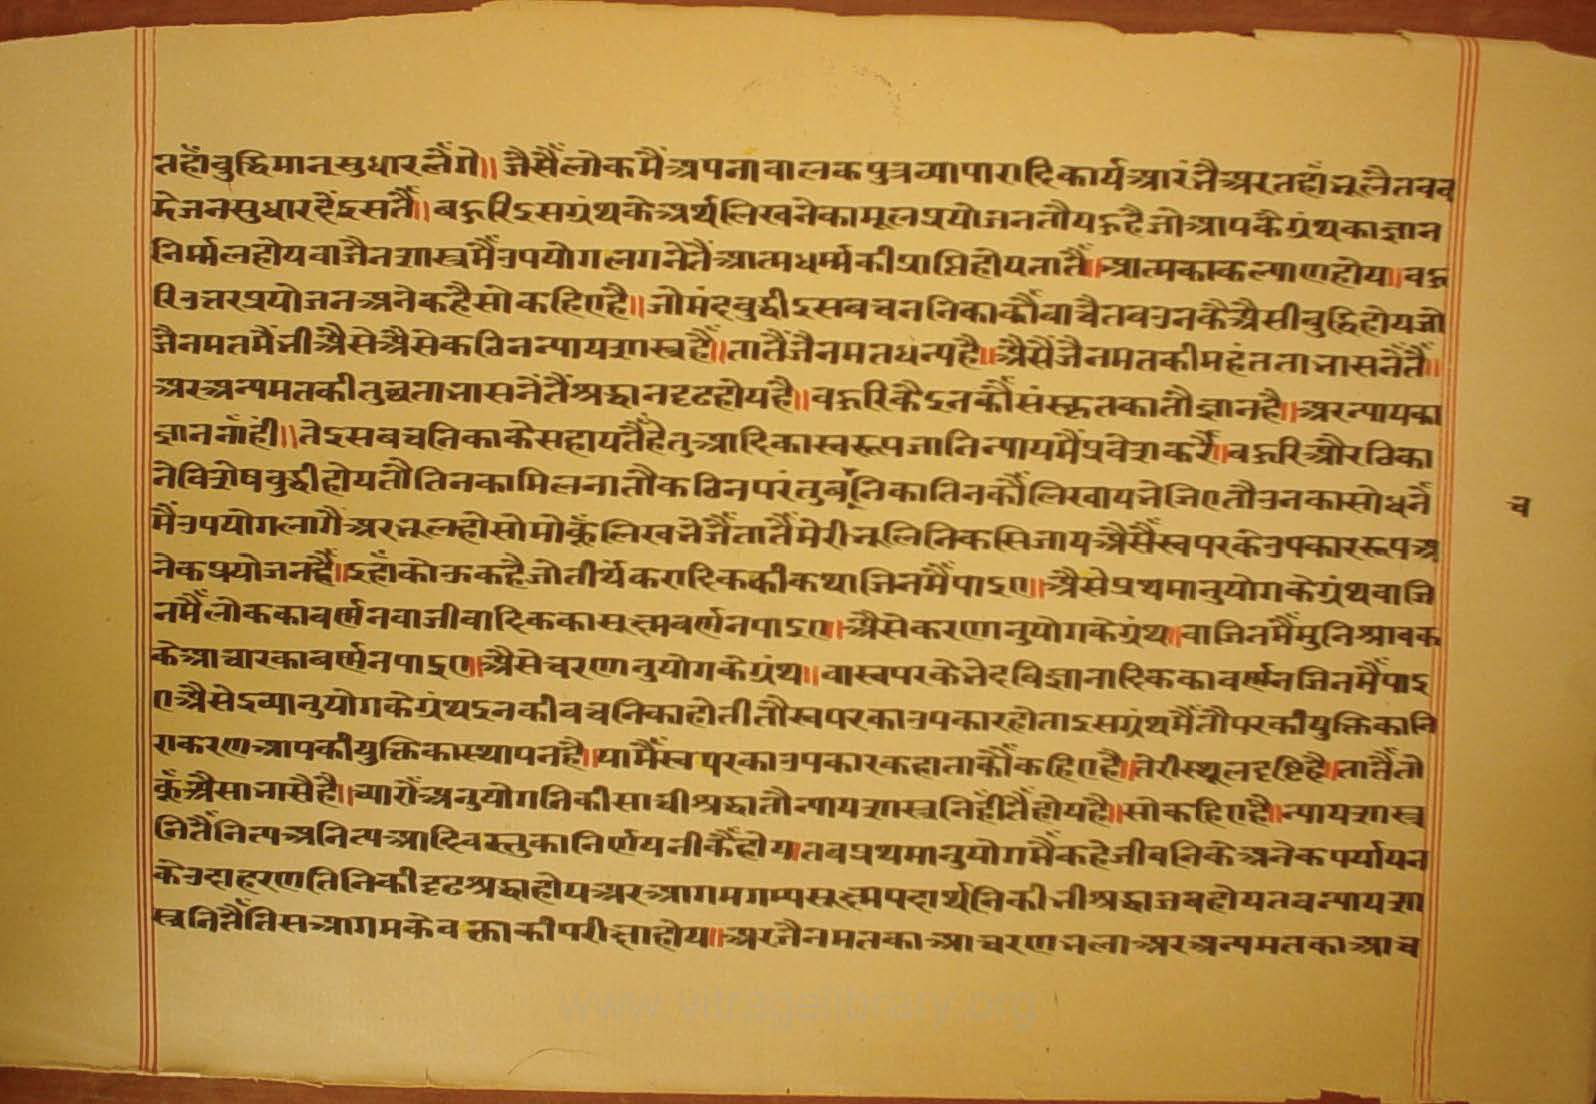 तहाँ बुद्धिमान् सुधार लैंगे॥ जैसैं लोकमैं अपना वालक पुत्र व्यापारादि कार्य आरंभै अर तहाँ भूलै तव व
डे जन सुधार दें इसतैं॥ बहुरि इस ग्रंथके अर्थ लिखनेका मूल प्रयोजन तौ यहु है जो आपकै ग्रंथका ज्ञान
निर्म्मल होय वा जैनशास्त्रमैं उपयोग लगनेतैं आत्मधर्म्मकी प्राप्ति होय तातैं॥ आत्मका कल्याण होय॥ वहु
रि उत्तर प्रयोजन अनेक है सो कहिए है॥ जो मंदबुद्धी इस वचननिकाकौं वाचै तव उनकै अैसी बुद्धि होय जो
जैनमतमैं भी अैसे अैसे कठिन न्यायशास्त्र हैं॥ तातैं जैनमत धन्य है॥ अैसैं जैनमतकी महंतता भासनेंतैं॥
अर अन्यमतकी तुच्छता भासनेंतैं श्रद्धान दृढ होय है॥ वहुरि कैइनकौं संस्कृतका तौ ज्ञान है॥ अर न्यायका
ज्ञान नाँहीं॥ ते इस बचनिकाके सहायतैं हेतु आदिका स्वरूप जानि न्यायमैं प्रवेश करैं॥ वहुरि और ठिका
ने विशेषबुद्धी होय तौ तिनका मिलना तौ कठिन परंतु बनिका तिनकौं लिखाय भेजिए तौ उनका सोधनें
च
मैं उपयोग लागै अर भूल हो सो मोकूँ लिख भेजैं तातैं मेरी भूलि निकसि जाय अैसैं स्वपरके उपकाररूप अ
नेक प्रयोजन हैं॥ इहाँ कोऊ कहै जो तीर्थंकरादिककी कथा जिनमैं पाइए॥ अैसे प्रथमानुयोगके ग्रंथ वा जि
नमैं लोकका वर्णन वा जीवादिकका सूक्ष्म वर्णन पाइए॥ अैसे करणानुयोगके ग्रंथ॥ वा जिनमैं मुनि श्रावक
के आचारका बर्णन पाइए॥ अैसे चरणनुयोगके ग्रंथ॥ वा स्वपरके भेदविज्ञानादिकका वर्णन जिनमैं पाइ
ए अैसे द्रव्यानुयोगके ग्रंथ इनकी वचनिका होती तौ स्वपरका उपकार होता इस ग्रंथमैं तौ परकी युक्तिका नि
राकरण आपकी युक्तिका स्थापन है॥ यामैं स्वपरका उपकार कहा ताकौं कहिए है॥ तेरी स्थूलदृष्टि है॥ तातैं तो
कूँ अैसा भासै है॥ च्यारौं अनुयोगनिकी साची श्रद्धा तौ न्यायशास्त्रनिहीतैं होय है॥ सो कहिए है॥ न्यायशास्त्र
नितैं नित्य अनित्य आदि वस्तुका निर्णय नीकैं होय॥ तव प्रथमानुयोगमैं कहे जीवनिके अनेक पर्यायन
के उदाहरण तिनिकी दृढ श्रद्धा होय अर आगमगम्य सूक्ष्मपदार्थनिकी भी श्रद्धा जब होय तव न्यायशा
स्त्रनितैं तिस आगमके वक्ताकी परीक्षा होय॥ अर जैनमतका आचरण भला अर अन्यमतका आच
www.vitragalibrary.org